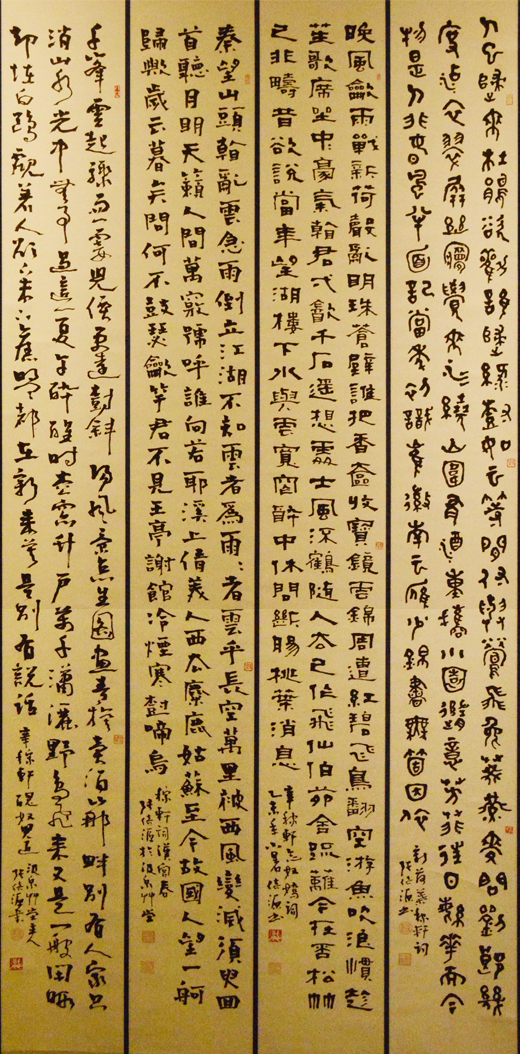 人已歸來杜鵑欲勸誰歸綠樹如云等閒付與鶯飛兔葵燕麥問劉郎幾
度沾衣翠屏幽夢覺來水繞山圍有酒重攜小園隨意芳菲往日繁華而今
物是人非春風半面記當年初識崔徽南云雁少錦書無箇因依
新荷葉稼軒詞
晚風龡雨戰新荷聲亂明珠蒼璧誰把香奩收寶鏡雲錦周遭紅碧飛鳥翻空游魚吹浪慣趁
笙歌席坐中豪氣看君一飲千石遙想處士風流鶴隨人去已作飛仙伯茆舍疏籬今在否松竹
已非疇昔欲說當年望湖樓下水與雲寬窄醉中休問斷腸桃葉消息
辛稼軒念奴嬌詞
秦望山頭看亂雲急雨倒立江湖不知雲者為雨雨者雲乎長空萬里被西風變滅須臾回
首聽月明天籟人間萬竅號呼誰向若耶溪上倩美人西去麋鹿姑蘇至今故國人望一舸
歸歟歲云暮矣問何不鼓瑟龡竽君不見王亭謝館冷煙寒樹啼烏
稼軒詞漢宮春
千峯雲起驟雨一霎兒價更遠樹斜陽風景怎生圖畫青旗賣酒山那畔別有人家只
消山水光中無事過這一夏午醉醒時松窗竹戶萬千瀟灑野鳥飛來又是一般閒暇
卻怪白鷗覷著人欲下未下舊盟都在新來莫是別有說話
辛稼軒醜奴兒近